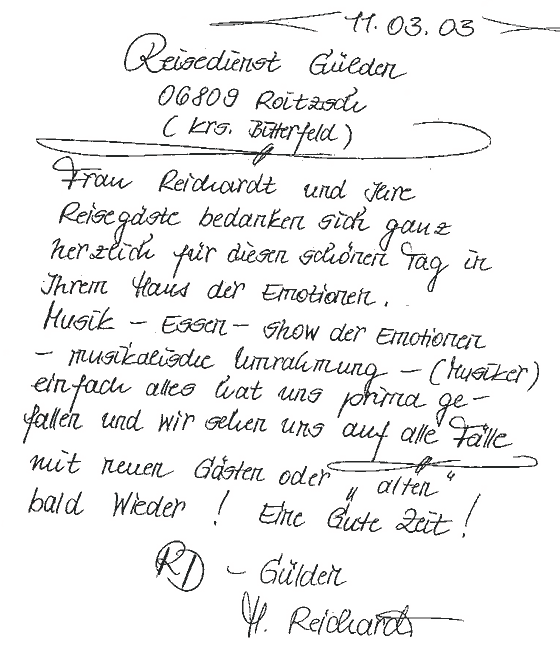 11.03.03
Reisedienst Gülden
06809 Roitzsch
(Krs. Bitterfeld)
Frau Reichardt und ihre
Reisegäste bedanken sich ganz
herzlich für diesen schönen Tag in
Ihrem Haus der Emotionen.
Musik - Essen - show der Emotionen
- musikalische Umrahmung - (Musiker)
einfach alles hat uns prima ge-
fallen und wir sehen uns auf alle Fälle
mit neuen Gästen oder „alten“
bald Wieder! Eine Gute Zeit!
RD - Gülden
H. Reichardt